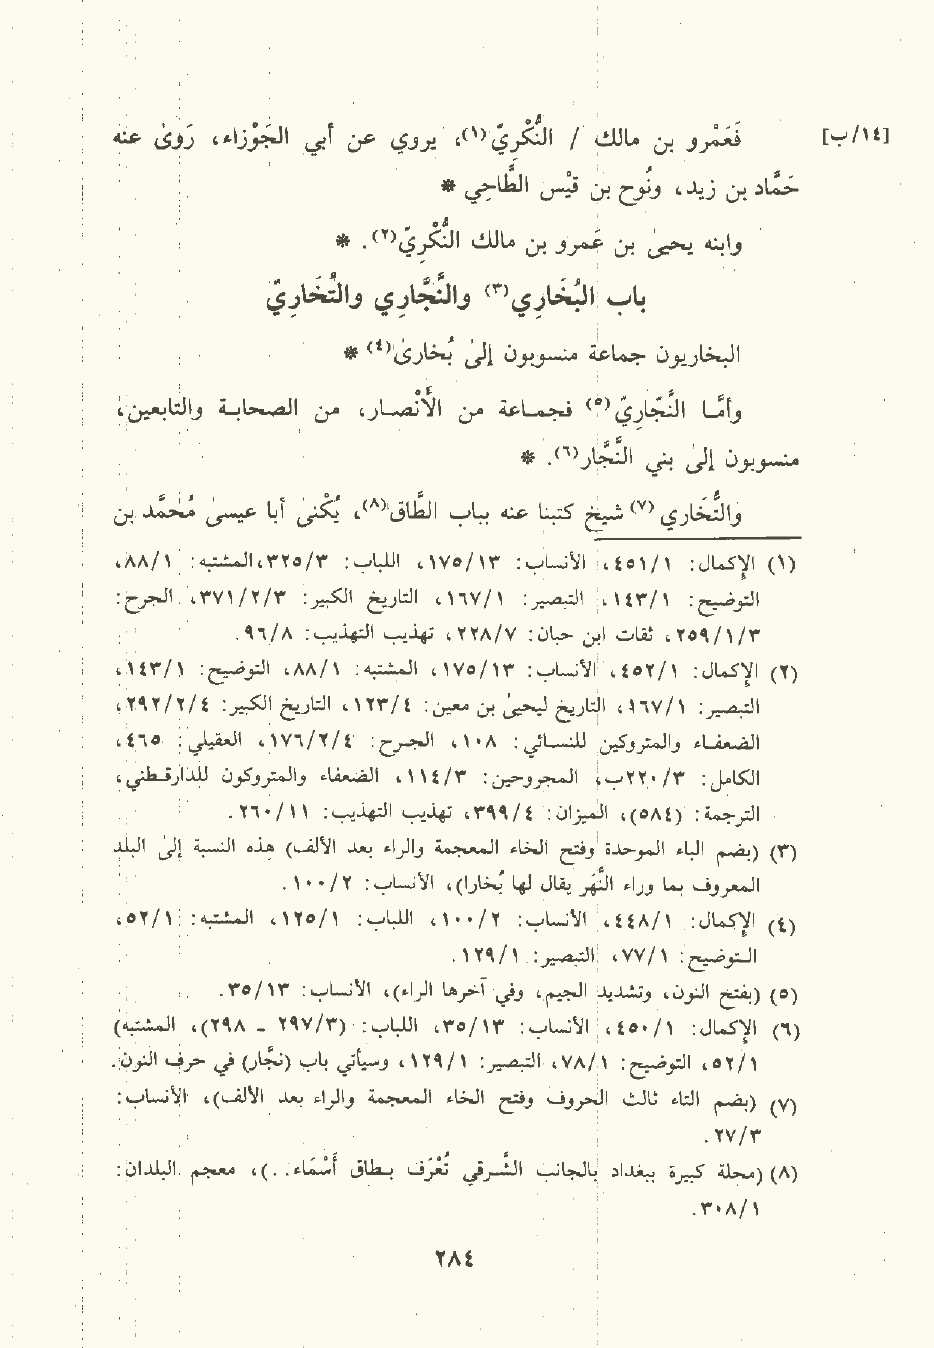 [١٤/ب] فَعَمْرو بن مالك / النُّكْرِيّ(١)، يروي عن أبي الجَوْزاء، رَوىٰ عنه
حَمَّاد بن زيد، ونُوح بن قيْس الطَّاحِي *
وابنه يحيىٰ بن عَمرو بن مالك النُّكْرِيّ(٢). *
باب البُخَارِي(٣) والنَّجَّارِي والتُخَارِيّ
البخاريون جماعة منسوبون إلىٰ بُخارىٰ(٤) *
وأمَّا النَّجّارِيّ(٥) فجماعة من الأَنْصار، من الصحابة والتابعين،
منسوبون إلىٰ بني النَّجَّار(٦). *
والتُّخَاري(٧) شيخ كتبنا عنه بباب الطَّاق(٨)، يُكْنىٰ أبا عيسىٰ مُحَمَّد بن
(١) الإكمال: ٤٥١/١، الأنساب: ١٧٥/١٣، اللباب: ٣٢٥/٣، المشتبه: ٨٨/١،
التوضيح: ١٤٣/١، التبصير: ١٦٧/١، التاريخ الكبير: ٣٧١/٢/٣، الجرح:
٢٥٩/١/٣، ثقات ابن حبان: ٢٢٨/٧، تهذيب التهذيب: ٩٦/٨.
(٢) الإكمال: ٤٥٢/١، الأنساب: ١٧٥/١٣، المشتبه: ٨٨/١، التوضيح: ١٤٣/١،
التبصير: ١٦٧/١، التاريخ ليحيىٰ بن معين: ١٢٣/٤، التاريخ الكبير: ٢٩٢/٢/٤،
الضعفاء والمتروكين للنسائي: ١٠٨، الجرح: ١٧٦/٢/٤، العقيلي: ٤٦٥،
الكامل: ٢٢٠/٣ب، المجروحين: ١١٤/٣، الضعفاء والمتروكون للدارقطني،
الترجمة: (٥٨٤)، الميزان: ٣٩٩/٤، تهذيب التهذيب: ٢٦٠/١١.
(٣) (بضم الباء الموحدة وفتح الخاء المعجمة والراء بعد الألف) هذه النسبة إلىٰ البلد
المعروف بما وراء النَّهَر يقال لها بُخارا)، الأنساب: ١٠٠/٢.
(٤) الإكمال: ٤٤٨/١، الأنساب: ١٠٠/٢، اللباب: ١٢٥/١، المشتبه: ٥٢/١،
التوضيح: ٧٧/١، التبصير: ١٢٩/١.
(٥) (بفتح النون، وتشديد الجيم، وفي آخرها الراء)، الأنساب: ٣٥/١٣.
(٦) الإكمال: ٤٥٠/١، الأنساب: ٣٥/١٣، اللباب: (٢٩٧/٣ - ٢٩٨)، المشتبه)
٥٢/١، التوضيح: ٧٨/١، التبصير: ١٢٩/١، وسيأتي باب (نجَّار) في حرف النون.
(٧) (بضم التاء ثالث الحروف وفتح الخاء المعجمة والراء بعد الألف)، الأنساب:
٢٧/٣.
(٨) (محلة كبيرة ببغداد بالجانب الشَّرقي تُعْرَف بطاق أَسْمَاء. . .)، معجم البلدان:
٣٠٨/١.
٢٨٤